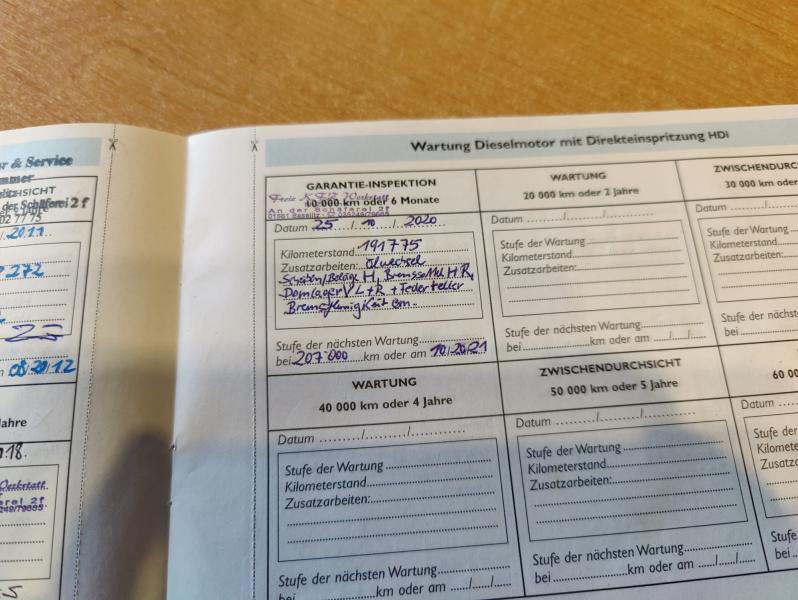 r & Service
mmer
SICHT
der Schäferei 2 f
02 77 75
20.11.
272
08 2012
Jahre
18.
Werkstatt
ferei 2f
Wartung Dieselmotor mit Direkteinspritzung HDi
GARANTIE-INSPEKTION
10 000 km oder 6 Monate
Freie KFZ Werkstatt
An der Schäferei 2f
Datum 25 / 10 / 2020
Kilometerstand 191775
Zusatzarbeiten: Ölwechsel
Scheiben/Beläge H, Bremssattel HR,
Domlager VL+R + Federteller
Bremsflüssigkeit ern.
Stufe der nächsten Wartung
bei 207000 km oder am 10/2021
WARTUNG
20 000 km oder 2 Jahre
Datum ....../....../......
Stufe der Wartung
Kilometerstand
Zusatzarbeiten:
Stufe der nächsten Wartung
bei ............ km oder am ..../..../....
ZWISCHENDURC
30 000 km oder
Datum
Stufe der Wartung
Kilometerstand
Zusatzarbeiten:
Stufe der nächst
bei
WARTUNG
40 000 km oder 4 Jahre
Datum ......../......../............
Stufe der Wartung
Kilometerstand
Zusatzarbeiten:
Stufe der nächsten Wartung
bei ............ km oder am ..../..../....
ZWISCHENDURCHSICHT
50 000 km oder 5 Jahre
Datum ......../......../............
Stufe der Wartung
Kilometerstand
Zusatzarbeiten:
Stufe der nächsten Wartung
bei ............ km oder am ..../..../....
60 00
Datum
Stufe der
Kilomete
Zusatza
Stufe
bei